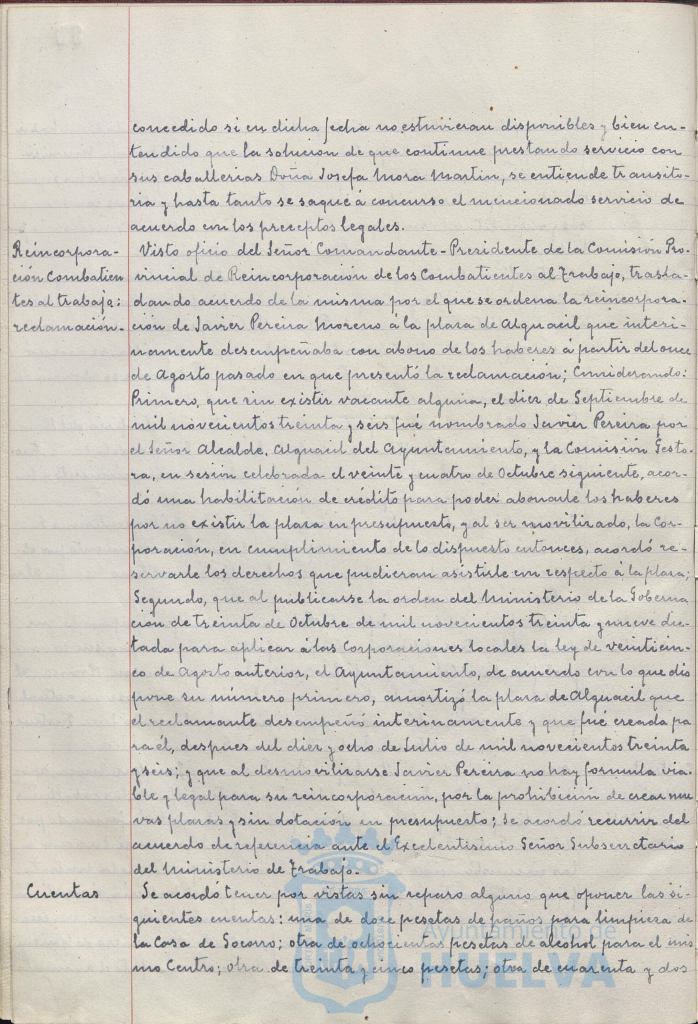 concedido si en dicha fecha no estuvieran disponibles y bien en-
tendido que la solución de que continue prestando servicio con
sus caballerias Doña Josefa Mora Martin, se entiende transito-
ria y hasta tanto se saque á concurso el mencionado servicio de
acuerdo con los preceptos legales.
Reincorpora-
ción Combatien
tes al trabajo:
reclamación.-
Visto oficio del Señor Comandante-Presidente de la Comisión Pro-
vincial de Reincorporación de los Combatientes al Trabajo, trasla-
dando acuerdo de la misma por el que se ordena la reincorpora-
ción de Javier Pereira Moreno á la plaza de Alguacil que interi-
namente desempeñaba con abono de los haberes á partir del once
de Agosto pasado en que presentó la reclamación; Considerando:
Primero, que sin existir vacante alguna, el diez de Septiembre de
mil novecientos treinta y seis fué nombrado Javier Pereira por
el Señor Alcalde, Alguacil del Ayuntamiento, y la Comisión Gesto-
ra, en sesión celebrada el veinte y cuatro de Octubre siguiente, acor-
dó una habilitación de crédito para poder abonarle los haberes
por no existir la plaza en presupuesto, y al ser movilizado, la Cor-
poración, en cumplimiento de lo dispuesto entonces, acordó re-
servarle los derechos que pudieran asistirle con respecto á la plaza;
Segundo, que al publicarse la orden del Ministerio de la Goberna
ción de treinta de Octubre de mil novecientos treinta y nueve dic-
tada para aplicar á las Corporaciones locales la ley de veinticin-
co de Agosto anterior, el Ayuntamiento, de acuerdo con lo que dis
pone su número primero, amortizó la plaza de Alguacil que
el reclamante desempeñó interinamente y que fué creada pa
ra él, despues del diez y ocho de Julio de mil novecientos treinta
y seis; y que al desmovilizarse Javier Pereira no hay formula via-
ble y legal para su reincorporación, por la prohibición de crear nue
vas plazas y sin dotación en presupuesto; Se acordó recurrir del
acuerdo de referencia ante el Excelentisimo Señor Subsecretario
del Ministerio de Trabajo.-
Cuentas
Se acordó tener por vistas sin reparo alguno que oponer las si-
guientes cuentas: una de doce pesetas de paños para limpieza de
la Casa de Socorro; otra de ochocientas pesetas de alcohol para el mis
mo Centro; otra de treinta y cinco pesetas; otra de cuarenta y dos
Ayuntamiento de
HUELVA